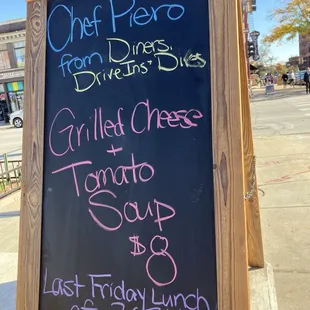 Chef Piero
from Diners,
Drive Ins + Dives
Grilled Cheese
+
Tomato
Soup
$8
Last Friday Lunch
of